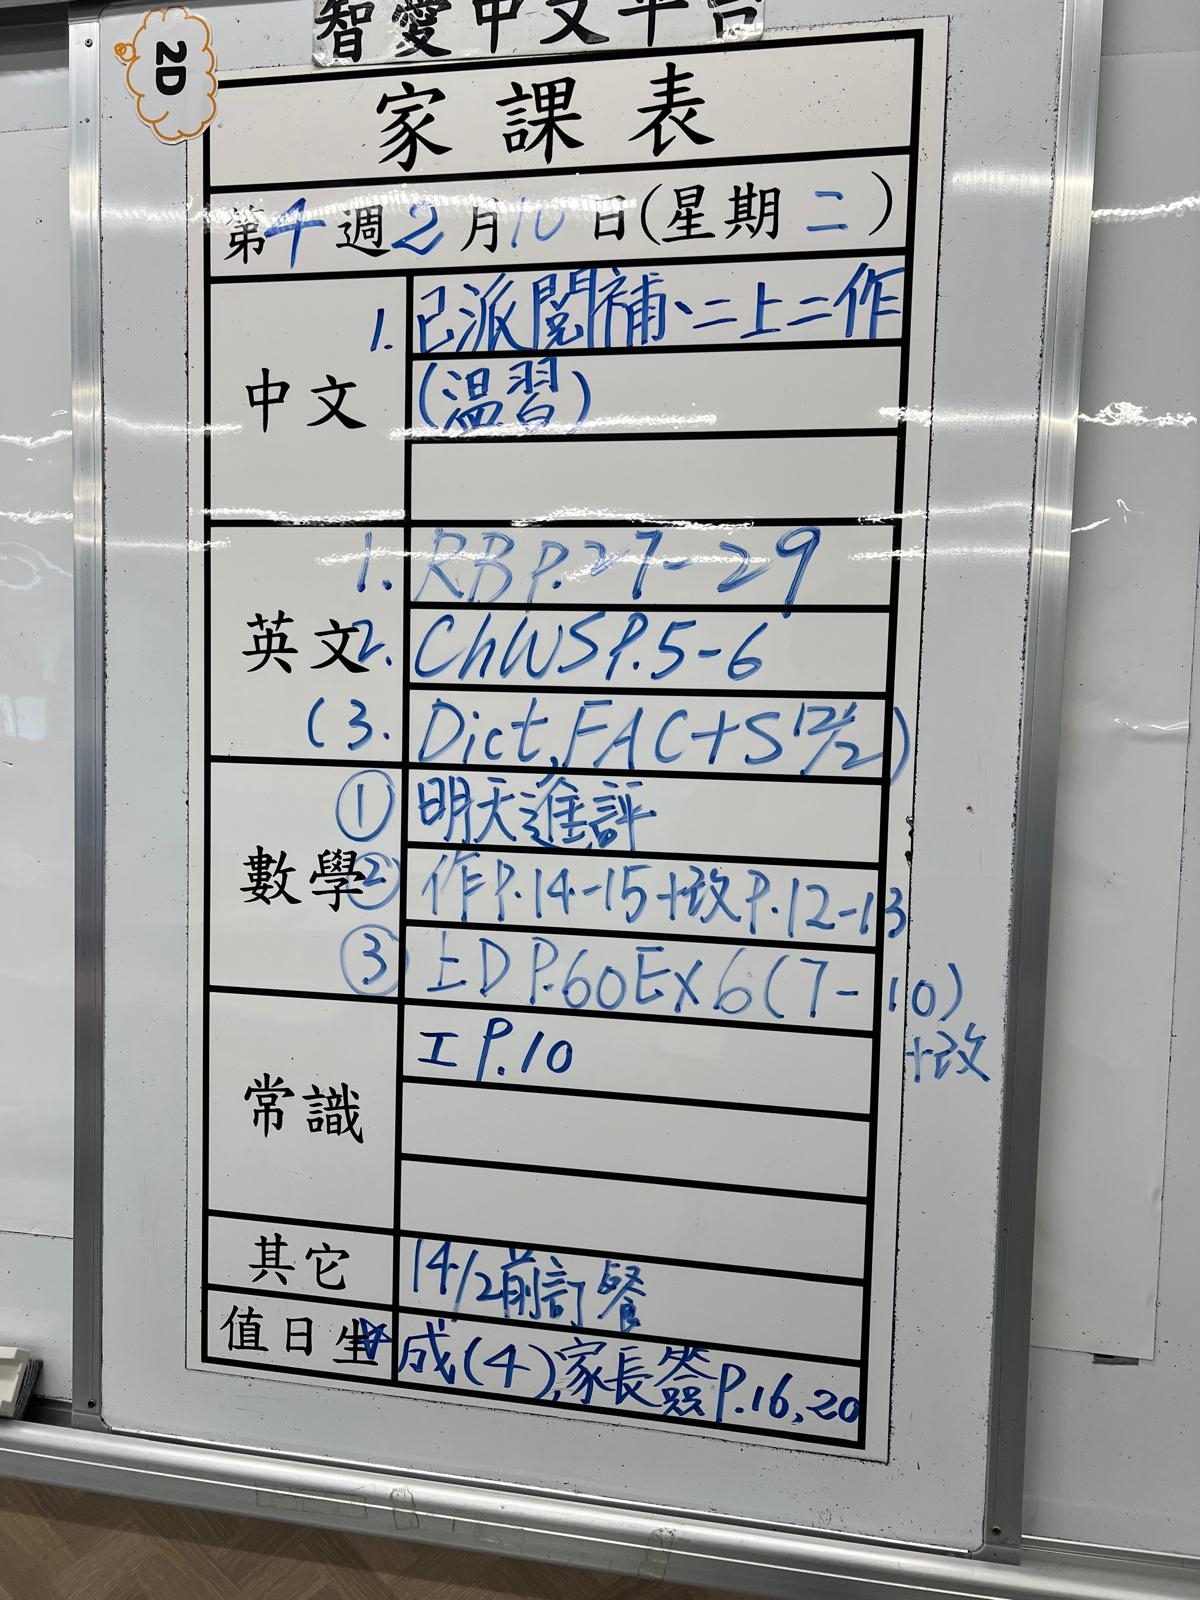 智愛中文平台
2D
家課表
第4週2月10日(星期二)
中文
1. 已派閱補、二上二作
(溫習)
英文
1. RB P.27-29
2. Ch WS P.5-6
(3. Dict, FAC+S 12/2)
數學
① 明天進評
② 作P.14-15+改P.12-13
③ 上D P.60 Ex 6(7-10)
+改
常識
工 P.10
其它
14/2前訂餐
值日生
成(4),家長簽P.16,20